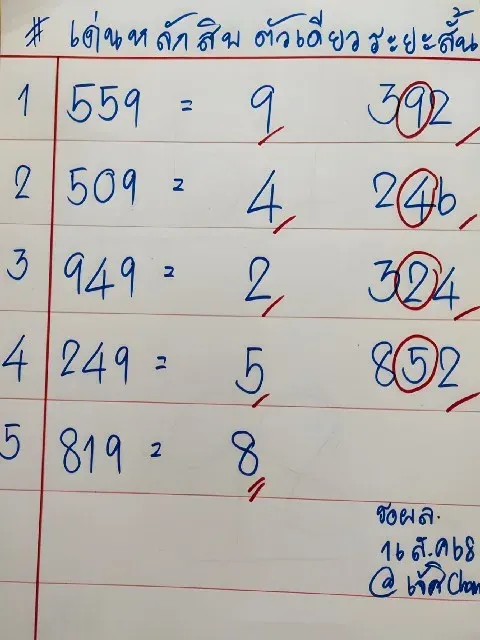 # เด่นหลักสิบ ตัวเดียว ระยะสั้น
1 559 = 9 392
2 509 = 4 246
3 949 = 2 324
4 249 = 5 852
5 819 = 8
รอผล.
16 ส.ค 68
@ เจ๊